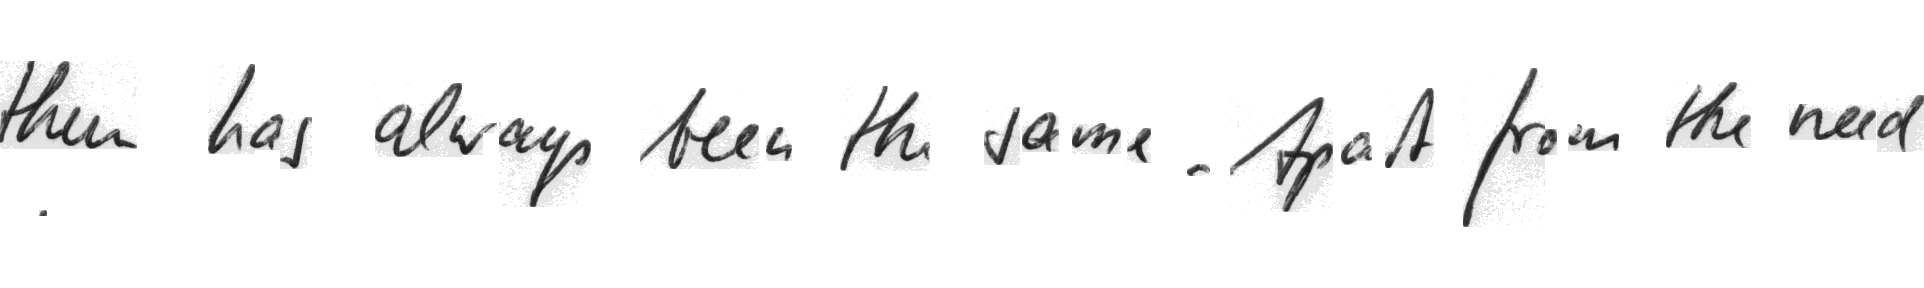 them has always been the same. Apart from the need